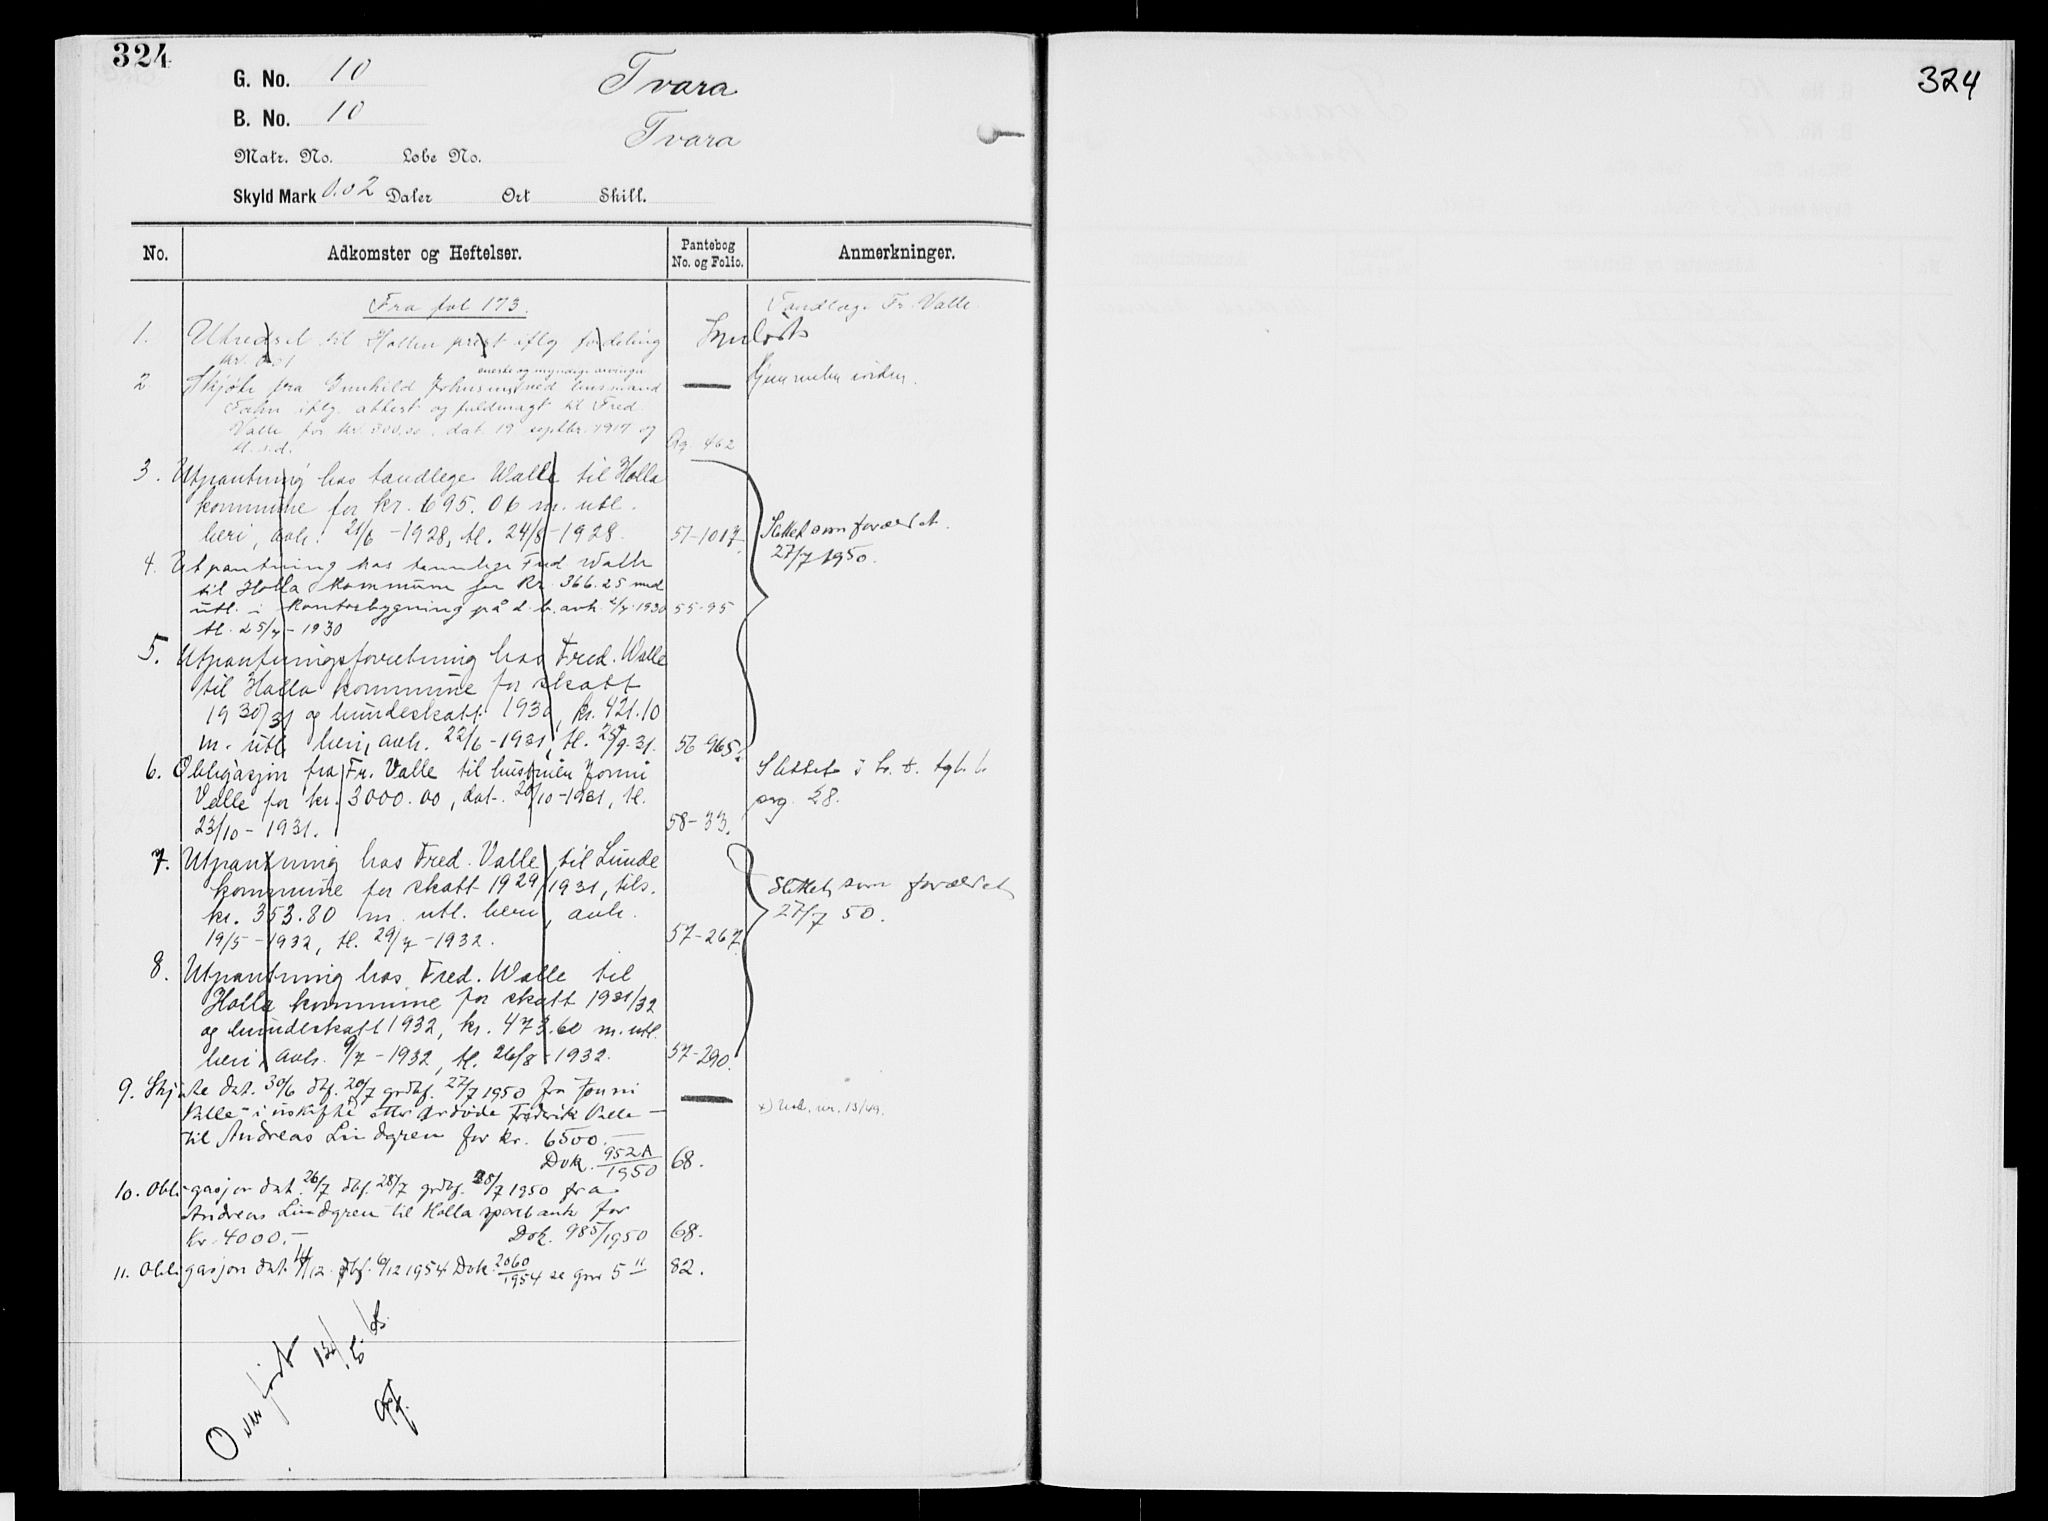 324
G. No. 10 Tvara
B. No. 10 Tvara
Matr. No. Løbe No.
Skyld Mark 0.02 Daler Ort Skill.
No. Adkomster og Heftelser. Pantebog No. og Folio. Anmerkninger.
Fra fol 173. Tandlæge Fr. Valle
1. Utredsel til Hollen prest iflg fordeling Innløst
kr. 0.01
eneste og myndige arvinger
2 Skjøte fra Gunhild ved husmand — Gjennem
iflg. attest og fuldmagt til Fred.
Valle for kr. 300,00. dat. 19 septbr. 1917 og
tl. s.d. 462
3. Utpantning hos tandlege Walle til Holla
kommune for kr. 695.06 m. utl.
heri, avh. 21/6-1928, tl. 24/8-1928. 51-1017. Slettet som foreldet.
27/7 1950.
4. Utpantning hos tannlege Fred Walle
til Holla kommune for kr. 366.25 med
utl. i kontorbygning på d. b. avh. 2/7-1930 55-95
tl. 25/7-1930
5. Utpantningsforretning hos Fred. Walle
til Holla kommune for skatt
1930/31 og hundeskatt 1930, kr. 421.10
m. utl. heri, avh. 22/6-1931, tl. 25/9-31. 56-965.
6. Obligasjon fra Fr. Valle til hustruen Jonni Slettet i h. t. tgb. b.
Valle for kr. 3000.00, dat. 20/10-1931, tl. pag. 28.
23/10-1931. 58-33.
7. Utpantning hos Fred. Valle til Lunde
kommune for skatt 1929/1931, tils. Slettet som foreldet
kr. 353.80 m. utl. heri, avh. 27/7 50.
19/5-1932, tl. 29/7-1932. 57-267.
8. Utpantning hos Fred. Walle til
Holla kommune for skatt 1931/32
og hundeskatt 1932, kr. 473.60 m. utl.
heri, avh. 9/7-1932, tl. 26/8-1932. 57-290.
9. Skjøte dat. 30/6 dbf. 20/7 grdbf. 27/7 1950 fra Jonni —
Valle - i uskifte etter avdøde Frederik Valle — x) Usk. nr. 13/49.
til Andreas Lindgren for kr. 6500.—
Dok. 952A/1950 68.
10. Obligasjon dat. 26/7 dbf. 28/7 grdbf. 28/7 1950 fra
Andreas Lindgren til Holla sparebank for
kr. 4000.— Dok. 985/1950 68.
11. Obligasjon dat. /12 dbf. 6/12 1954 Dok. 2060/1954 se gnr 5 11 82.
Overført
324